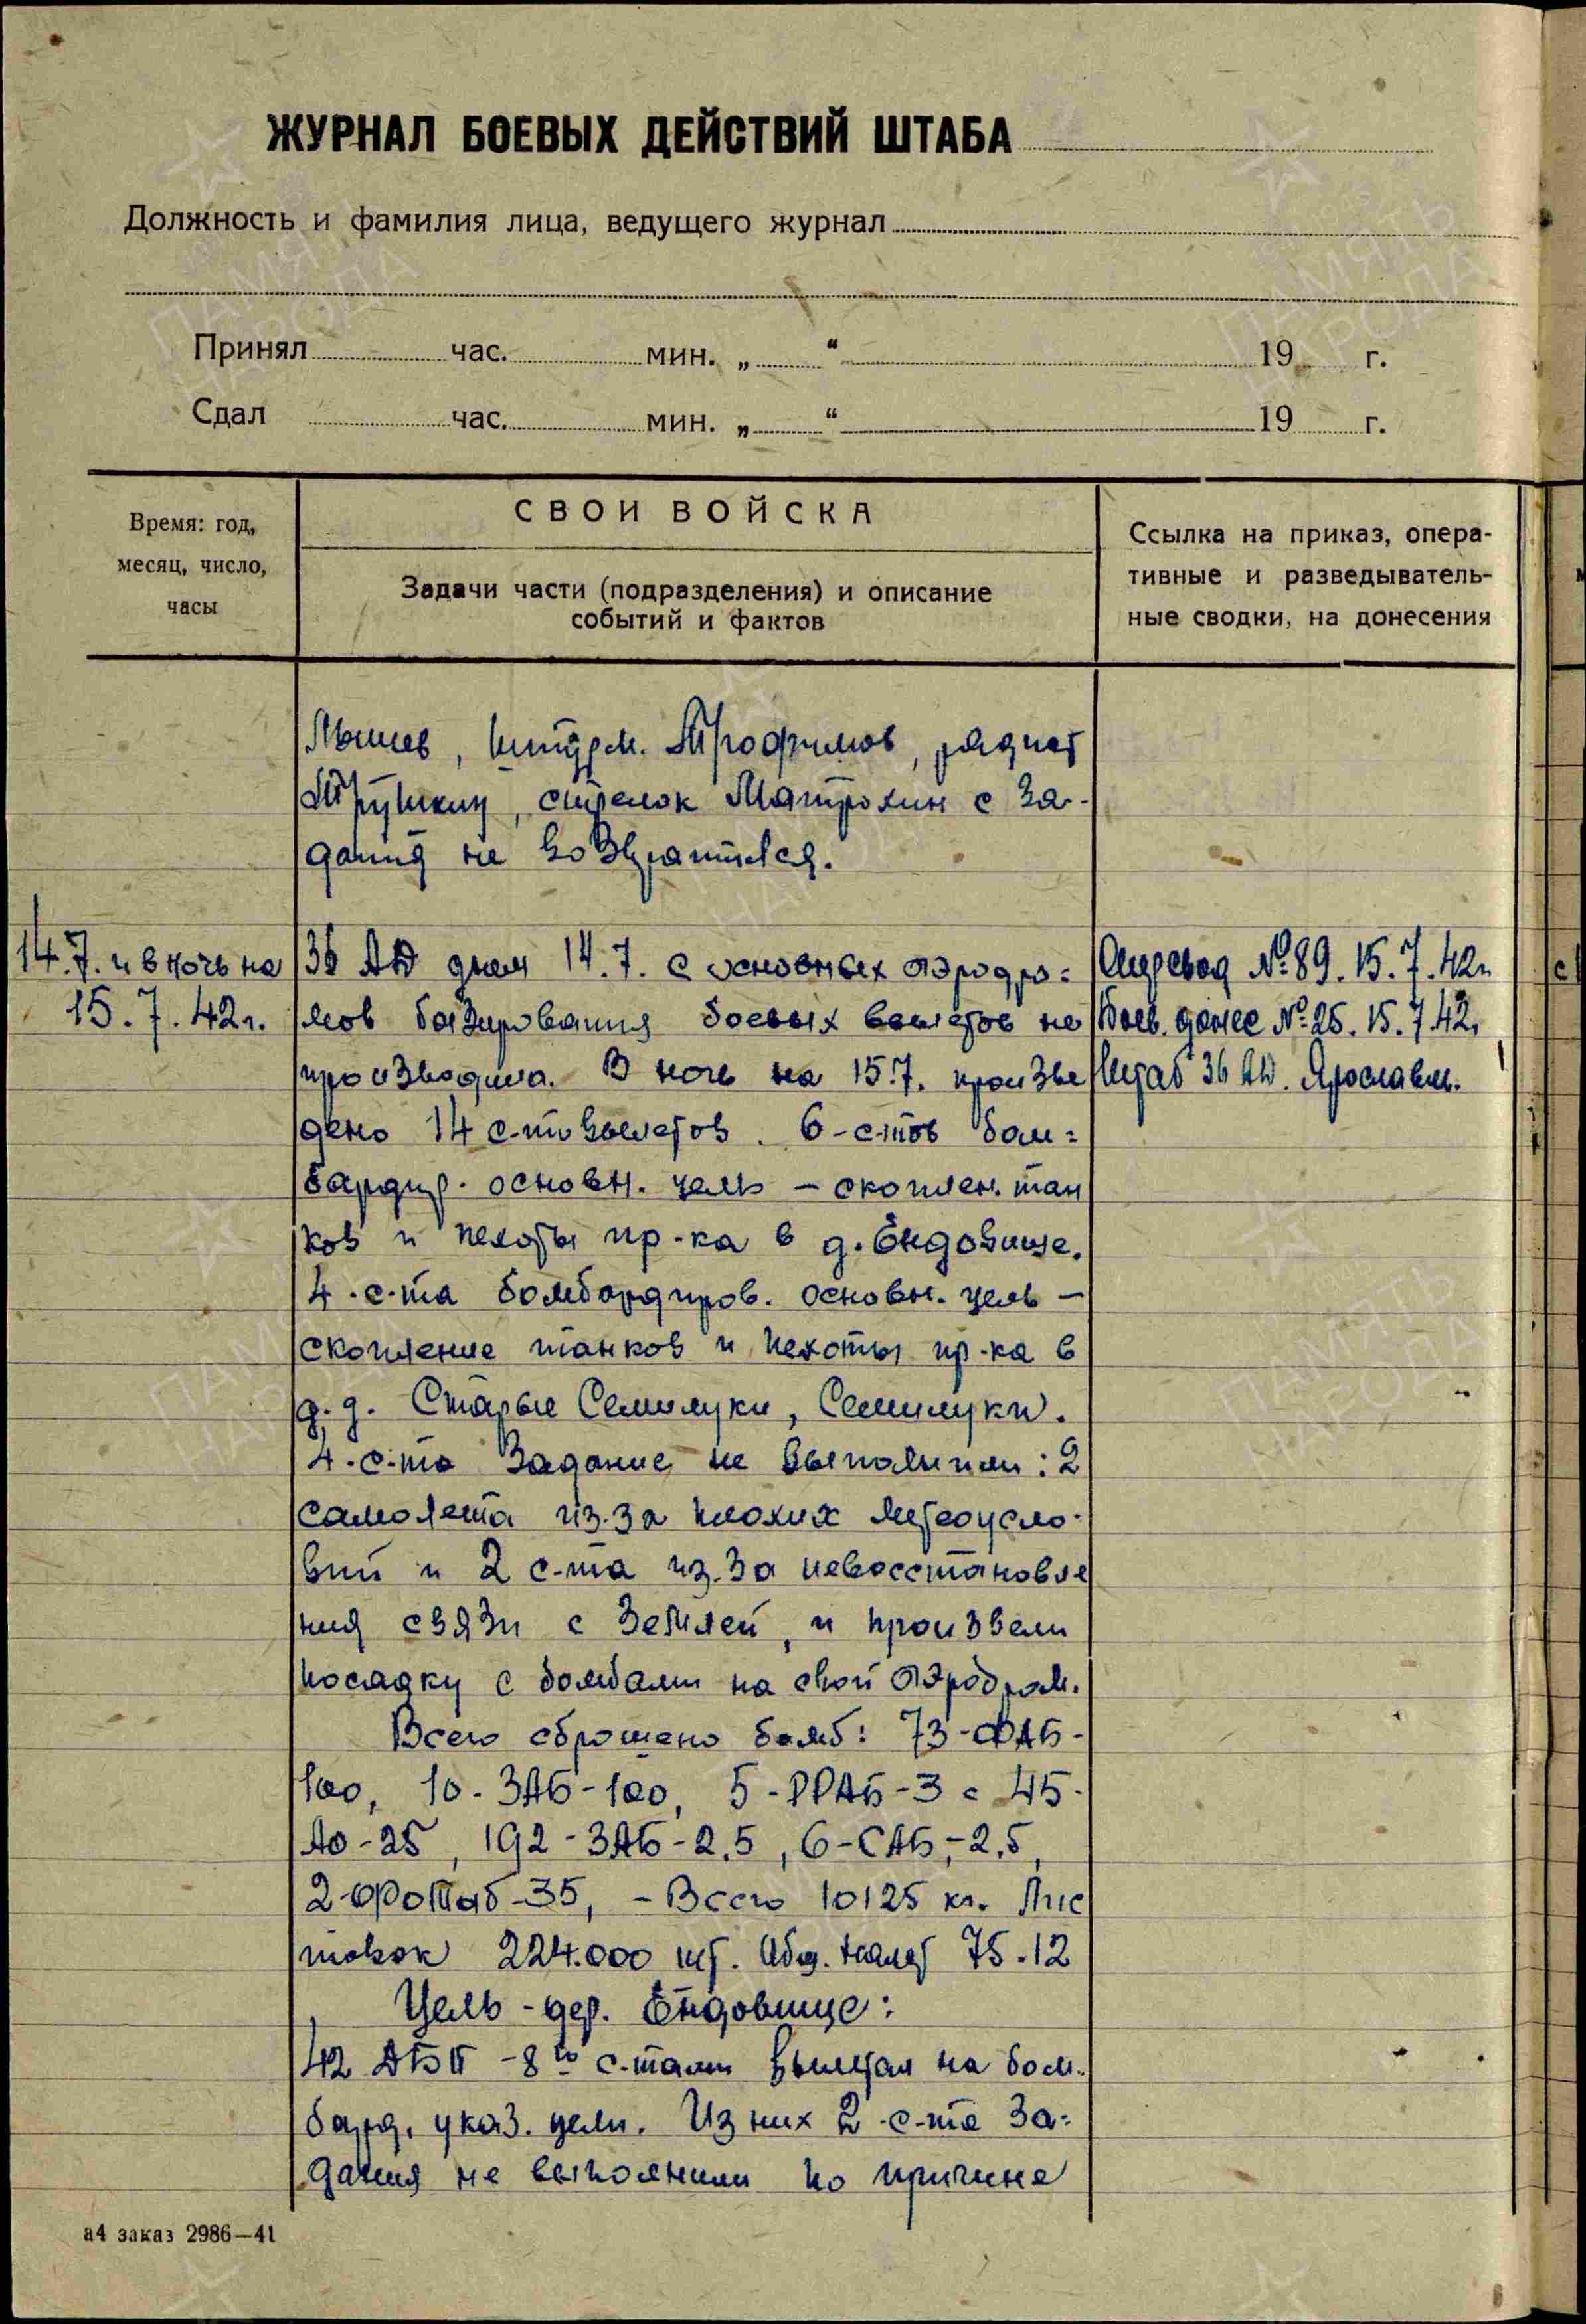 ЖУРНАЛ БОЕВЫХ ДЕЙСТВИЙ ШТАБА
Должность и фамилия лица, ведущего журнал
Принял час. мин. „ “ 19 г.
Сдал час. мин. „ “ 19 г.
Время: год,
месяц, число,
часы
СВОИ ВОЙСКА
Задачи части (подразделения) и описание
событий и фактов
Ссылка на приказ, опера-
тивные и разведыватель-
ные сводки, на донесения
штурм. Трофимов, радист
Трушкин, стрелок Матрохин с за-
дания не возвратился.
14.7. и в ночь на
15.7.42г.
36 АД днем 14.7. с основных аэродро=
мов базирования боевых вылетов не
производила. В ночь на 15.7. произве
дено 14 с-товылетов. 6-с-тов бом=
бардир. основн. цель – скоплен. тан
ков и пехоты пр-ка в д. Ендовище.
4-с-та бомбардиров. основн. цель –
скопление танков и пехоты пр-ка в
д.д. Старые Семилуки, Семилуки.
4-с-та задание не выполнили: 2
самолета из-за плохих метеоусло-
вий и 2 с-та из-за невосстановле
ния связи с землей, и произвели
посадку с бомбами на свой аэродром.
Всего сброшено бомб: 73-ФАБ-
100, 10-ЗАБ-100, 5-РРАБ-3 = 45-
АО-25, 192-ЗАБ-2,5, 6-САБ-2,5,
2-Фотаб-35, – Всего 10125 кг. Лис
товок 224.000 шт. Общ. налет 75-12
Цель – дер. Ендовище:
42 ДБП – 8ю с-тами вылетал на бом-
бард. указ. цели. Из них 2-с-та за=
дания не выполнили по причине
Оперсвод №89. 15.7.42г.
Боев. донес №25. 15.7.42.
Штаб 36 АД. Ярославль.
а4 заказ 2986—41
ПАМЯТЬ
НАРОДА